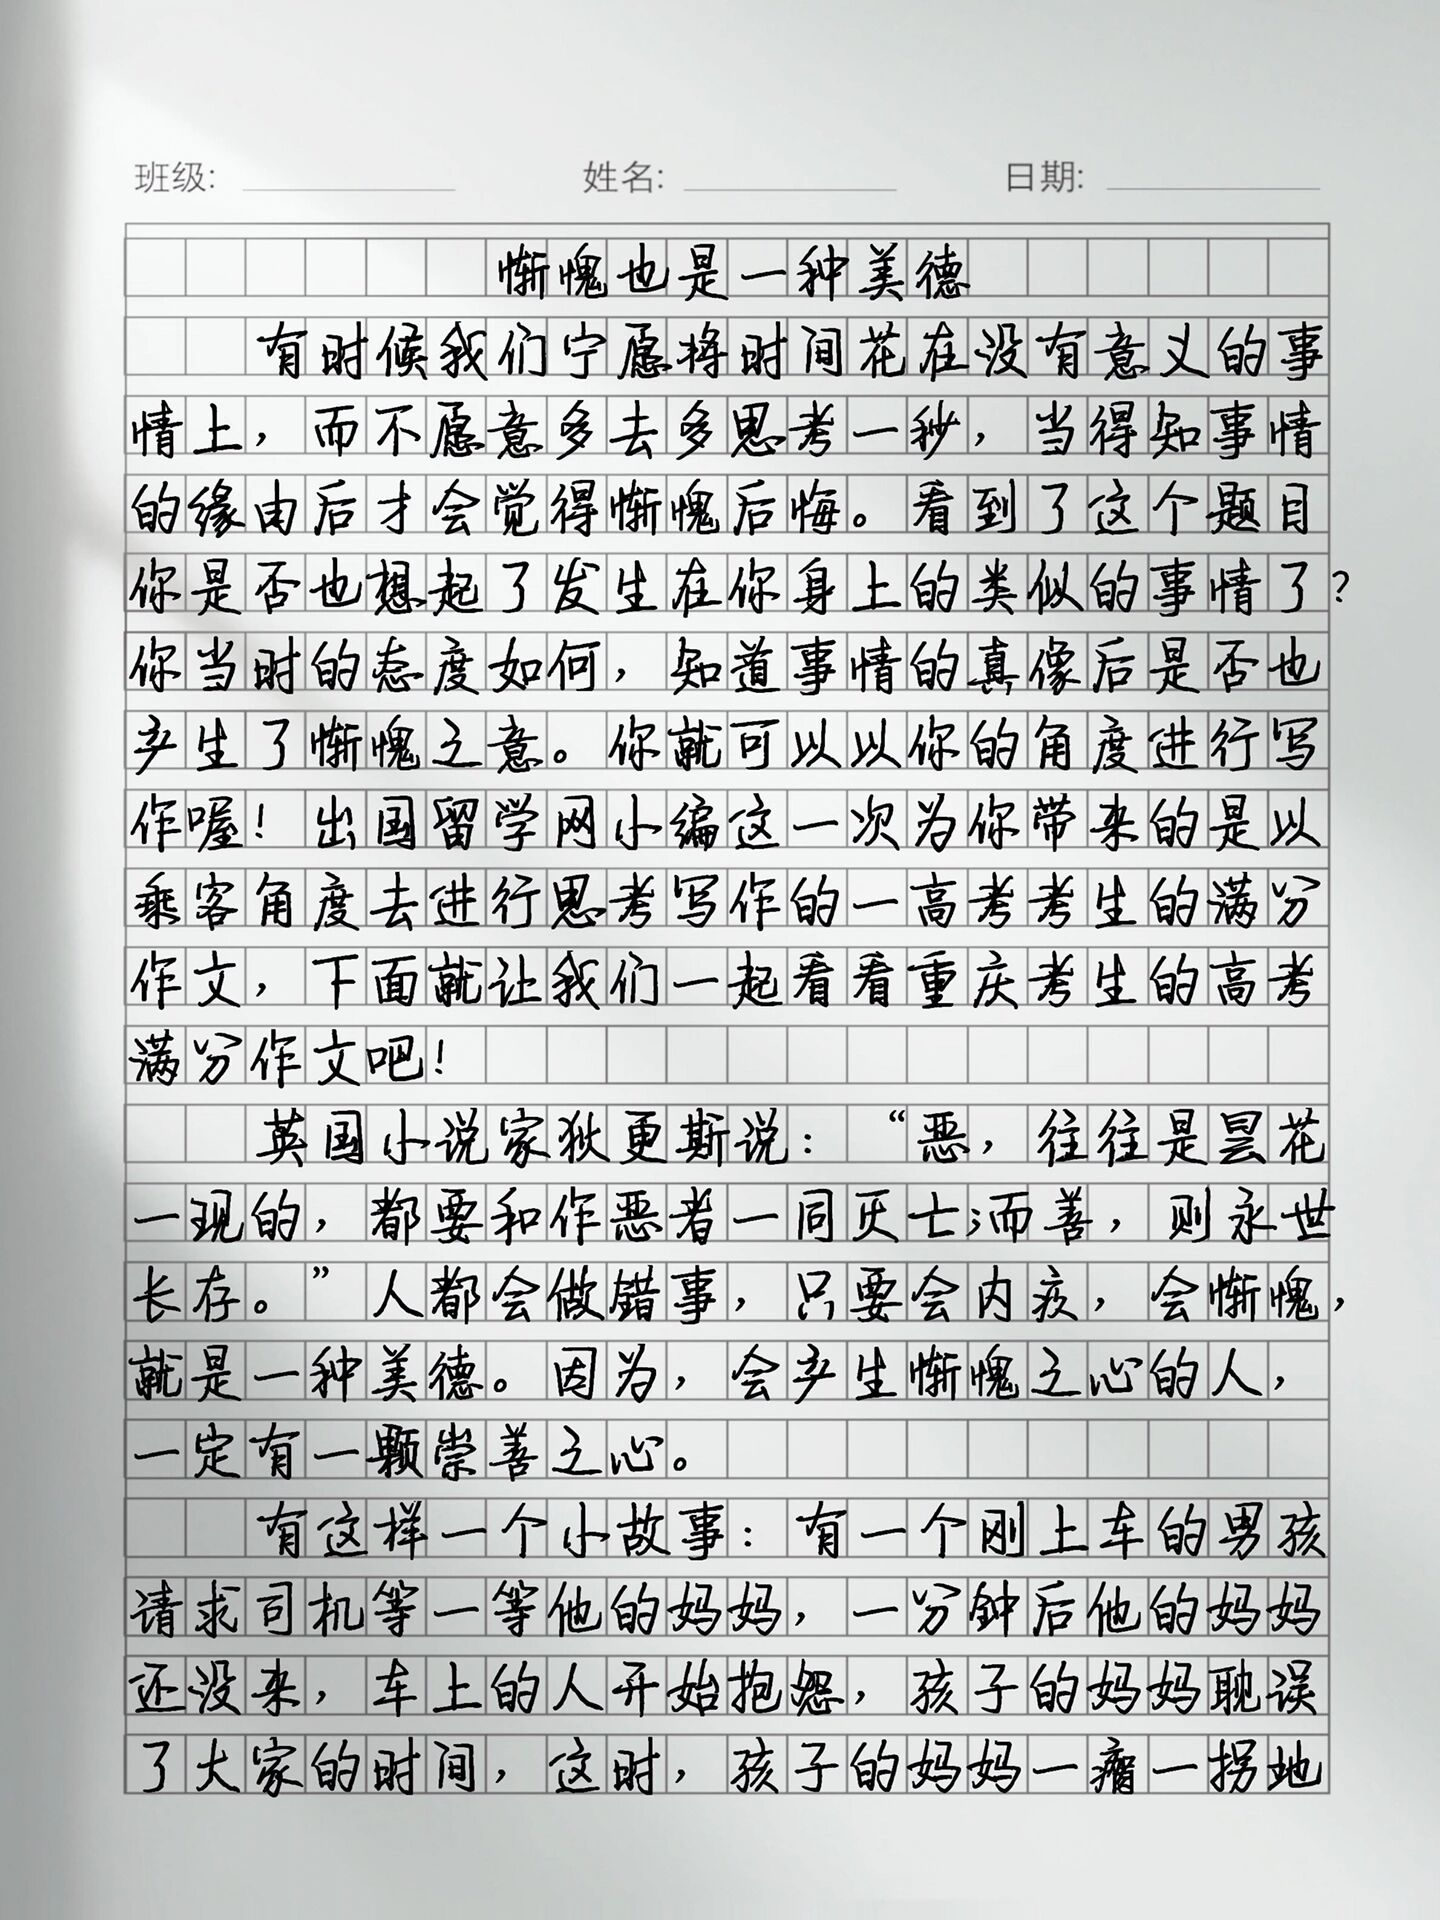 班级: 姓名: 日期:
惭愧也是一种美德
有时候我们宁愿将时间花在没有意义的事
情上，而不愿意多去多思考一秒，当得知事情
的缘由后才会觉得惭愧后悔。看到了这个题目
你是否也想起了发生在你身上的类似的事情了？
你当时的态度如何，知道事情的真像后是否也
产生了惭愧之意。你就可以以你的角度进行写
作喔！出国留学网小编这一次为你带来的是以
乘客角度去进行思考写作的一高考考生的满分
作文，下面就让我们一起看看重庆考生的高考
满分作文吧！
英国小说家狄更斯说：“恶，往往是昙花
一现的，都要和作恶者一同灭亡;而善，则永世
长存。”人都会做错事，只要会内疚，会惭愧，
就是一种美德。因为，会产生惭愧之心的人，
一定有一颗崇善之心。
有这样一个小故事：有一个刚上车的男孩
请求司机等一等他的妈妈，一分钟后他的妈妈
还没来，车上的人开始抱怨，孩子的妈妈耽误
了大家的时间，这时，孩子的妈妈一瘸一拐地